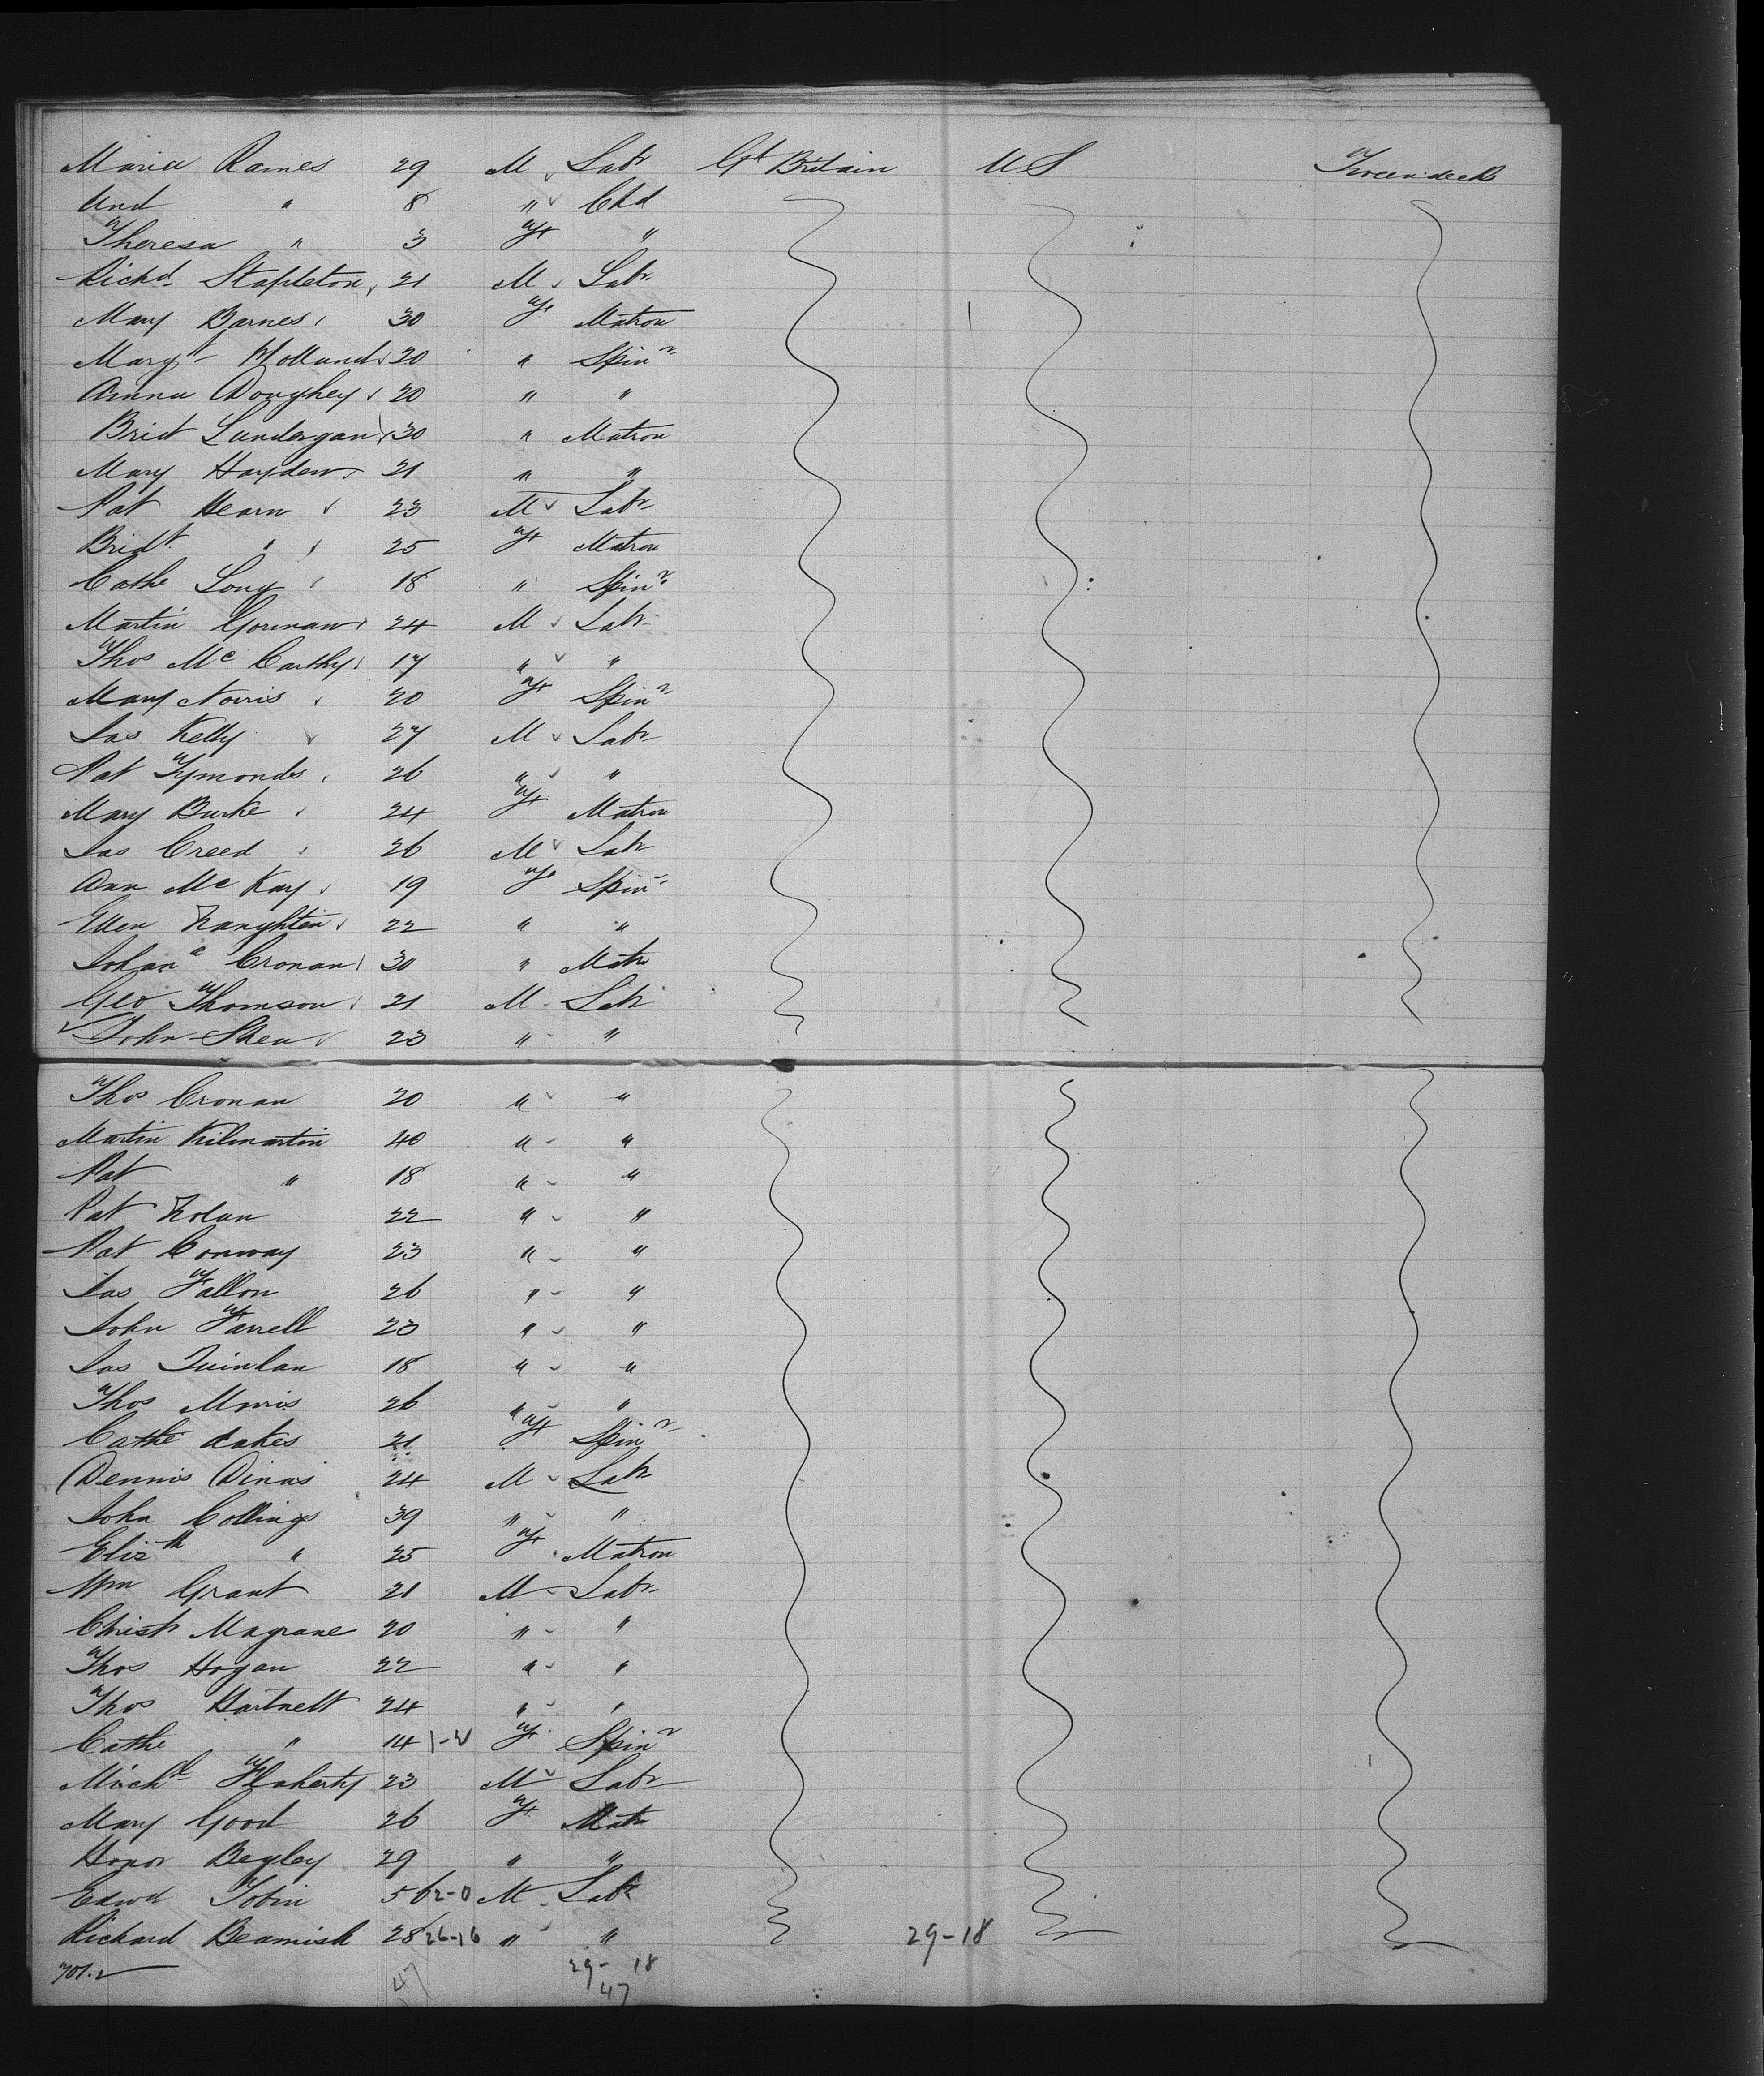 Maria Raines 29 M Labr Gt Britain U S Tween decks
And " 8 " Chd
Theresa " 3 F "
Richd Stapleton 21 M Labr
Mary Barnes 30 F Matron
Margt Holland 20 " Spinr
Anna Doughey 20 " "
Bridt Lundergan 30 " Matron
Mary Hayden 21 " "
Pat Hearn 23 M Labr
Bridt " 25 F Matron
Cathe Long 18 " Spinr
Martin Gorman 24 M Labr
Thos Mc Carthy 17 " "
Mary Norris 20 F Spinr
Jas Kelly 27 M Labr
Pat Symonds 26 " "
Mary Burke 24 F Matron
Jas Creed 26 M Labr
Ann Mc Kay 19 F Spinr
Ellen Naughton 22 " "
Johana Cronan 30 " Matn
Geo Thomson 21 M Labr
John Shea 23 " "
Thos Cronan 20 " "
Martin Kilmartin 40 " "
Pat " 18 " "
Pat Nolan 22 " "
Pat Conway 23 " "
Jas Fallon 26 " "
John Farrell 23 " "
Jas Quinlan 18 " "
Thos Morris 26 " "
Cathe 21 F Spinr
Dennis 24 M Labr
John Collings 39 " "
Elizth " 25 F Matron
Wm Grant 21 M Labr
Christr Magrane 20 " "
Thos Hogan 22 " "
Thos Hartnett 24 " "
Cathe " 14 F Spinr
Michl Flaherty 23 M Labr
Mary Good 26 F Matn
Honor Begley 29 " "
Edwd Tobin 5 M Labr
Richard Beamish 28 26-16 " " 29-18
29-18
47 47